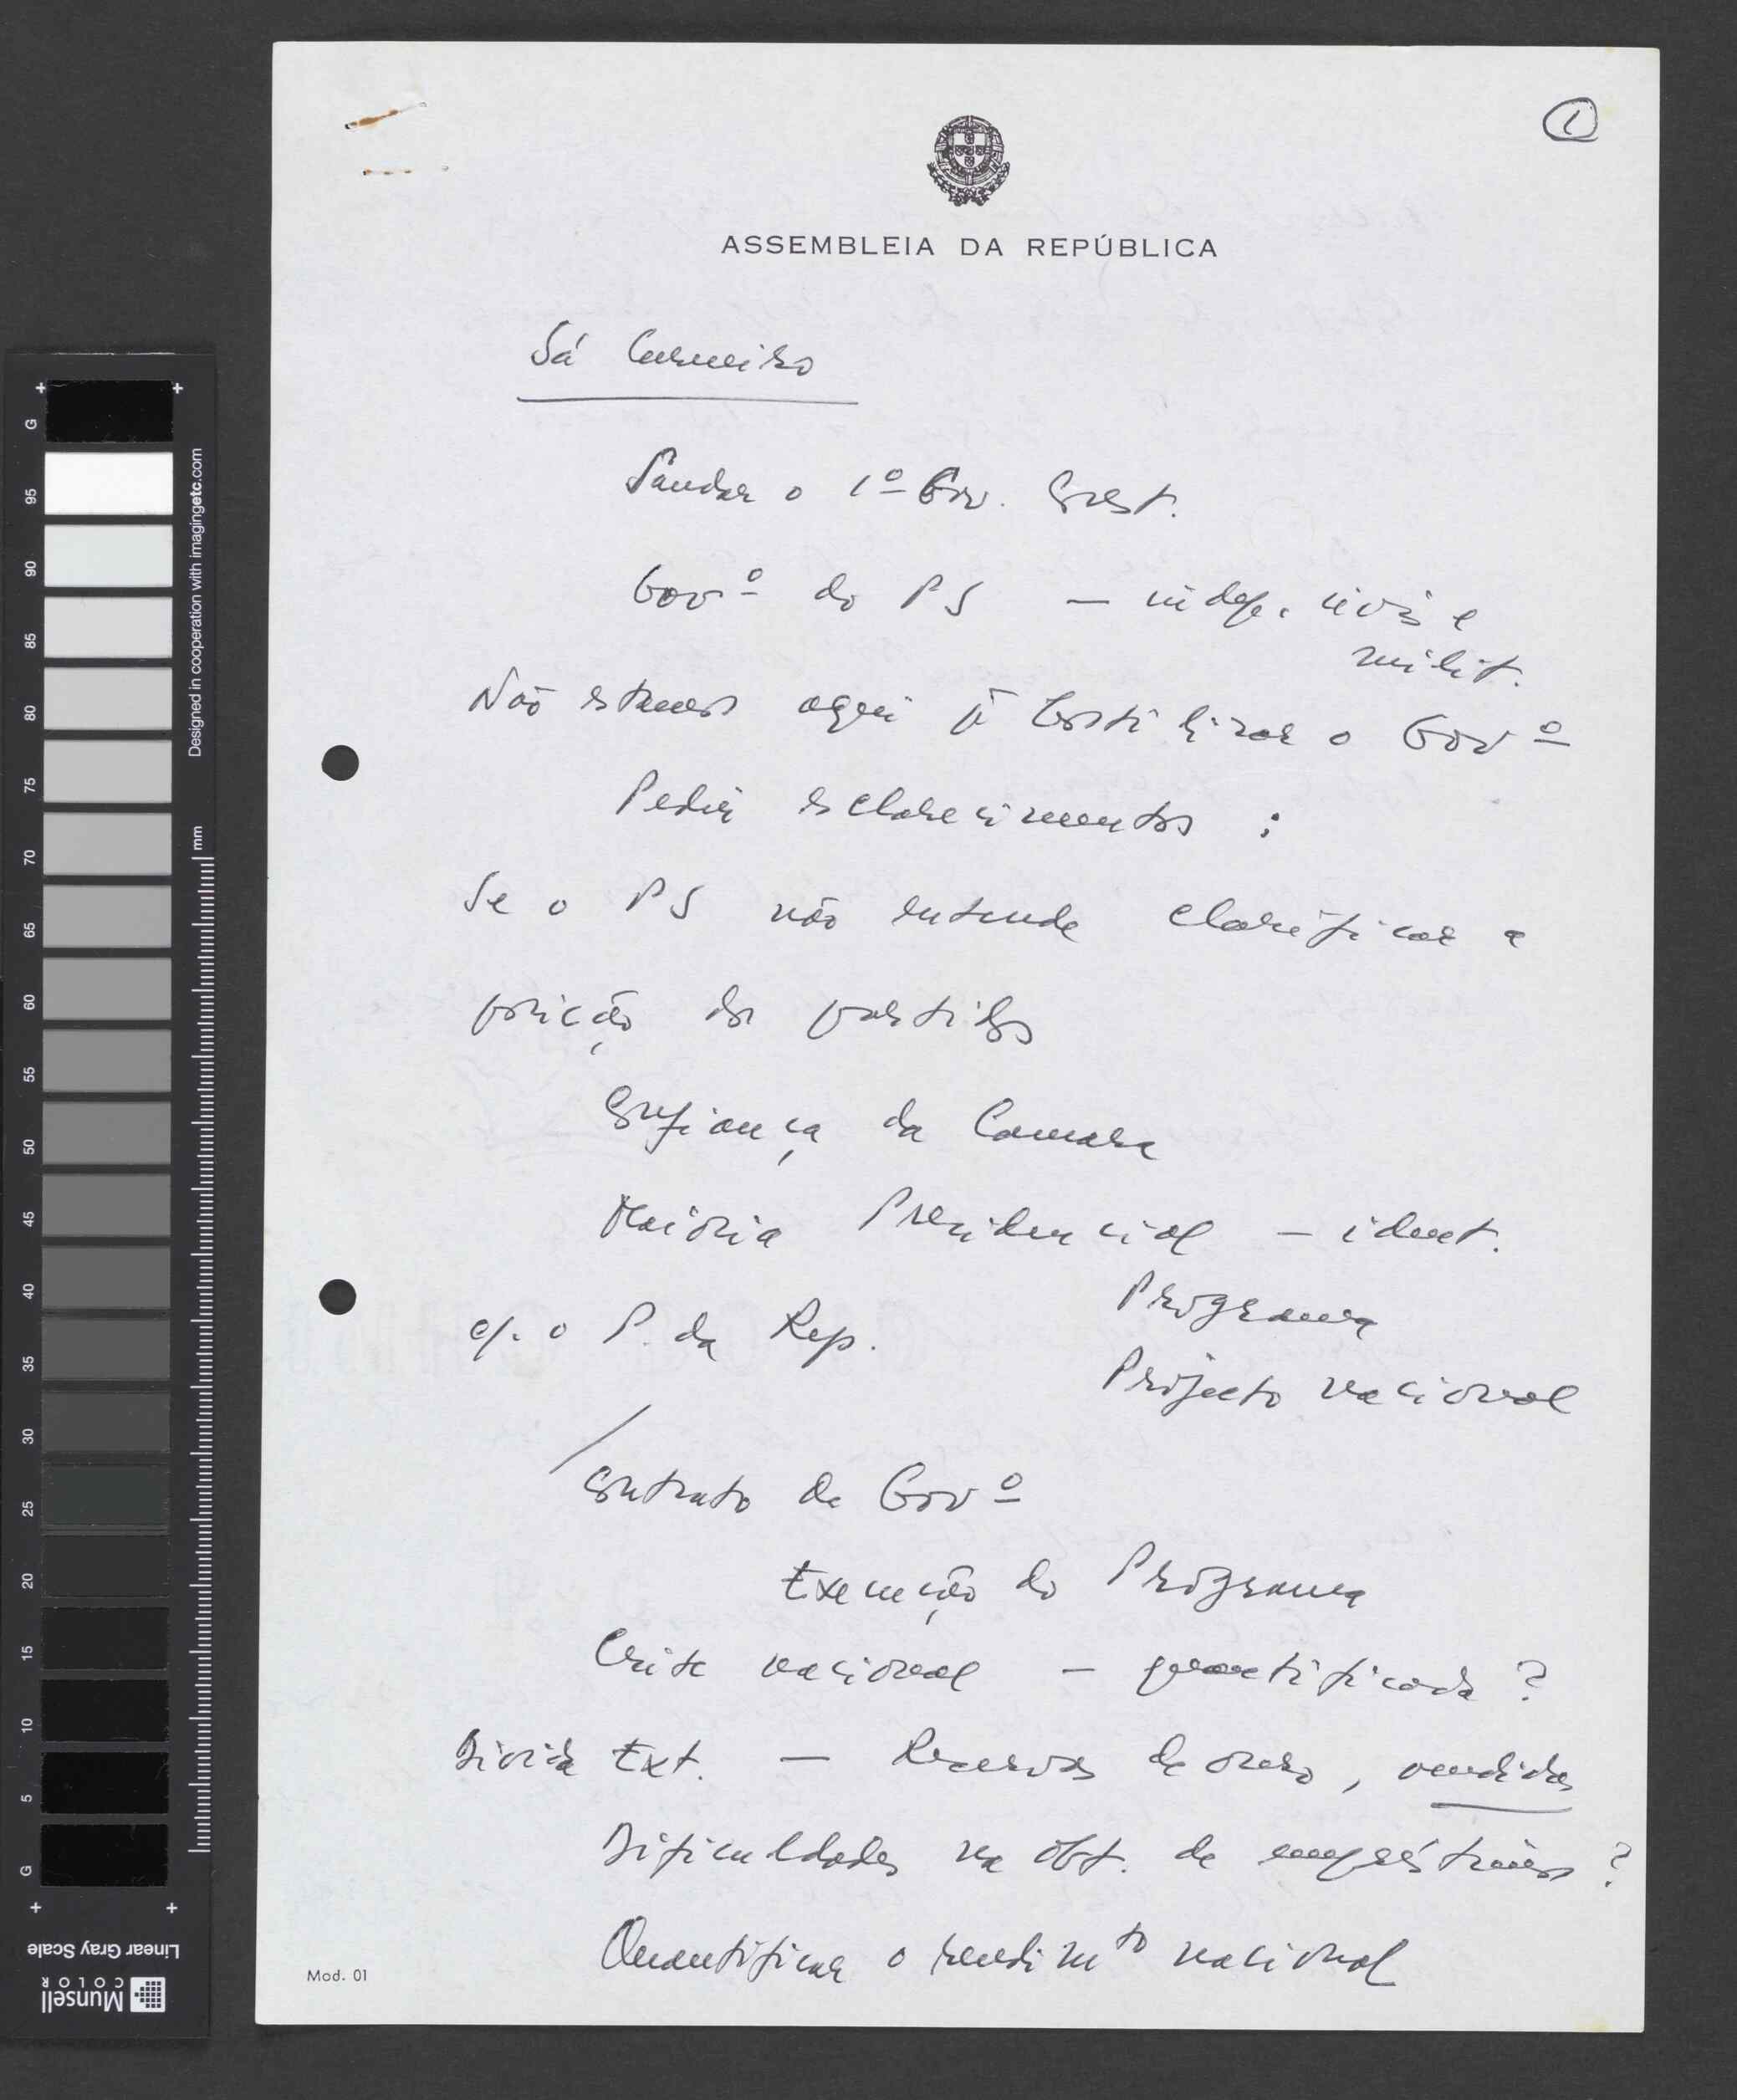 1
ASSEMBLEIA DA REPÚBLICA
Sá Carneiro
Saudar o 1º Gov. Const.
Govº do PS — indep. civis e
milit.
Não estamos aqui p/ hostilizar o Govº
Pedir esclarecimentos :
Se o PS não entende clarificar a
posição dos partidos
Confiança da Camara
Maioria Presidencial — ident.
c/. o P. da Rep.
Programa
Projecto nacional
Contrato de Govº
Execução do Programa
Crise nacional — quantificada ?
Divida Ext. — Reservas de ouro, vendidas
Dificuldades na obt. de empréstimos ?
Quantificar o rendimto nacional
Mod. 01
+ +
G
95
90
85
80
75
70
65
60
55
50
45
40
35
30
25
20
15
10
5
G
+ +
Designed in cooperation with imagingetc.com
mm
Linear Gray Scale
Munsell
COLOR